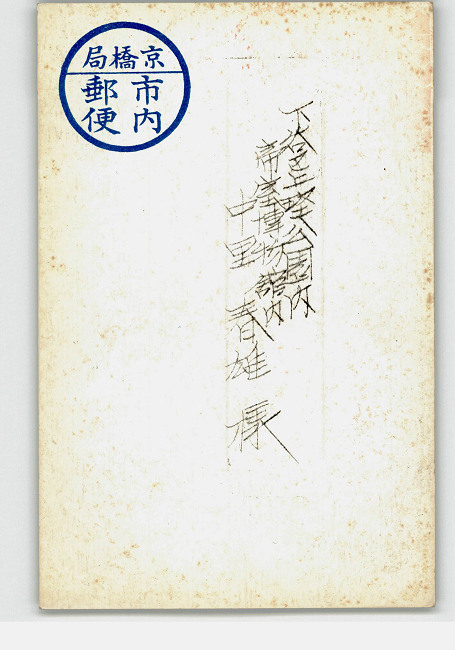 京橋局
市内
郵便
下谷区上埜公園内
帝室博物館内
中里 春雄 様